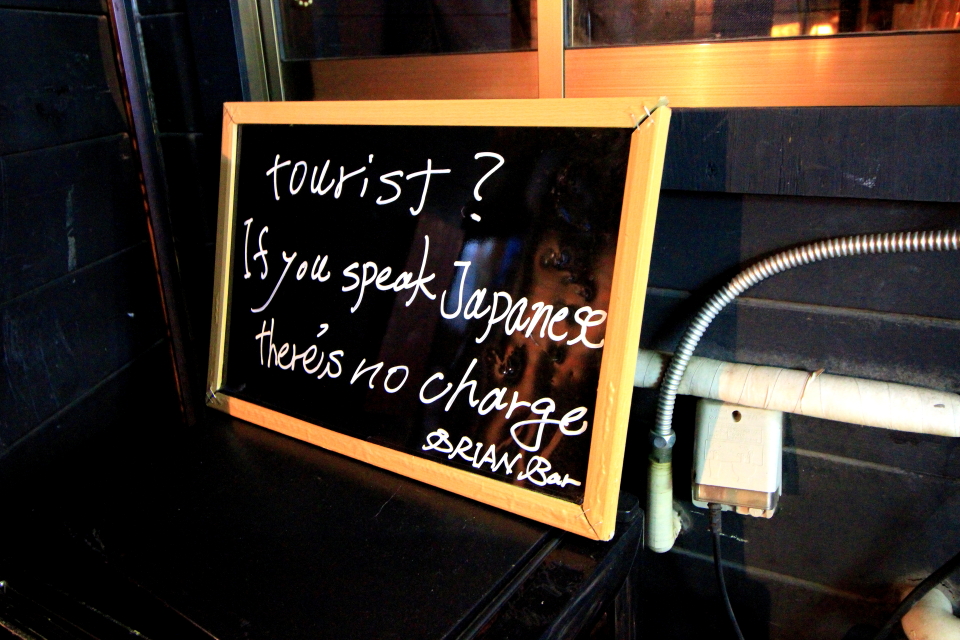 tourist ?
If you speak Japanese
there's no charge
BRIAN Bar